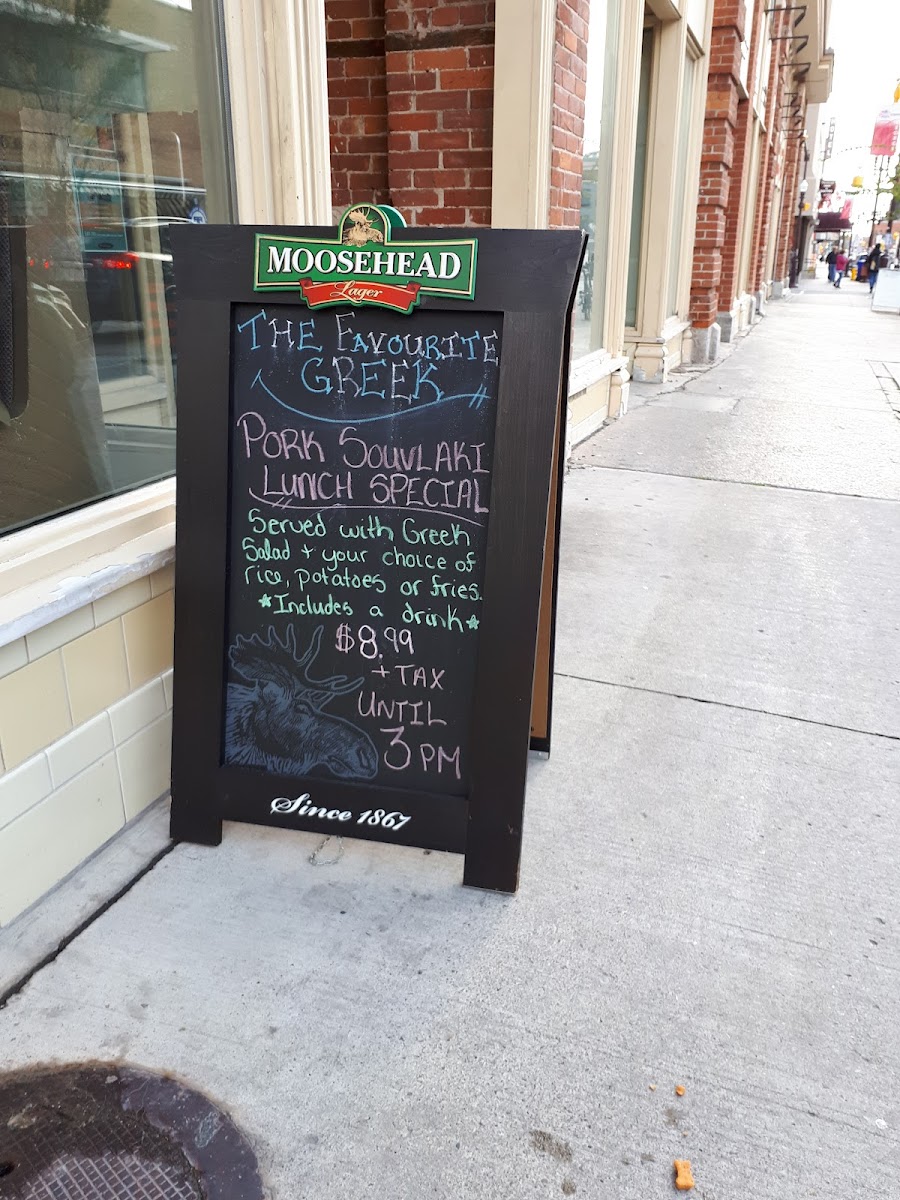 MOOSEHEAD
Lager
THE FAVOURITE
GREEK
PORK SOUVLAKI
LUNCH SPECIAL
Served with Greek
Salad + your choice of
rice, potatoes or fries.
*Includes a drink*
$8.99
+ TAX
UNTIL
3 PM
Since 1867